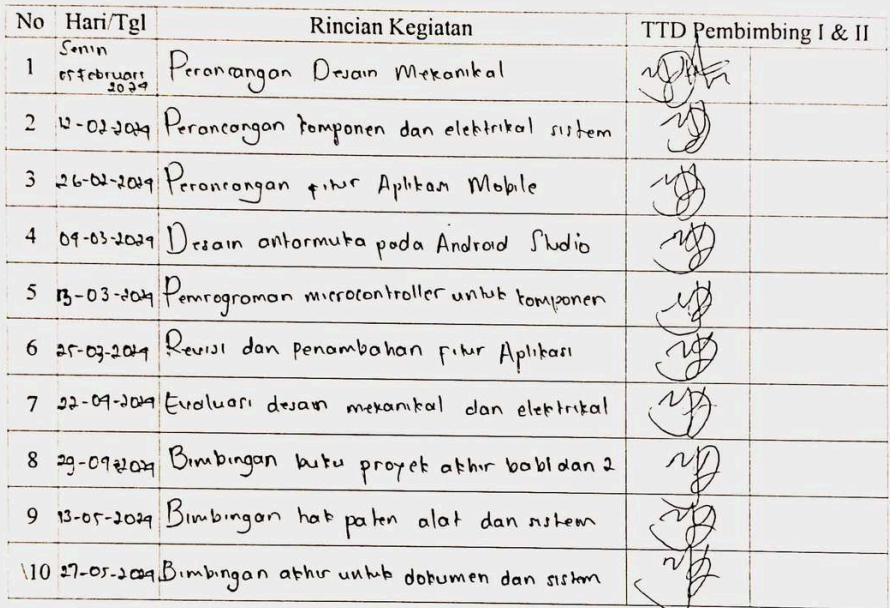 No Hari/Tgl Rincian Kegiatan TTD Pembimbing I & II
1 Senin 05 Februari 2024 Perancangan Desain Mekanikal
2 12-02-2024 Perancangan komponen dan elektrikal sistem
3 26-02-2024 Perancangan fitur Aplikasi Mobile
4 04-03-2024 Desain antarmuka pada Android Studio
5 13-03-2024 Pemrograman microcontroller untuk komponen
6 25-03-2024 Revisi dan penambahan fitur Aplikasi
7 22-04-2024 Evaluasi desain mekanikal dan elektrikal
8 29-04-2024 Bimbingan buku proyek akhir bab1 dan 2
9 13-05-2024 Bimbingan hak paten alat dan sistem
\10 27-05-2024 Bimbingan akhir untuk dokumen dan sistem